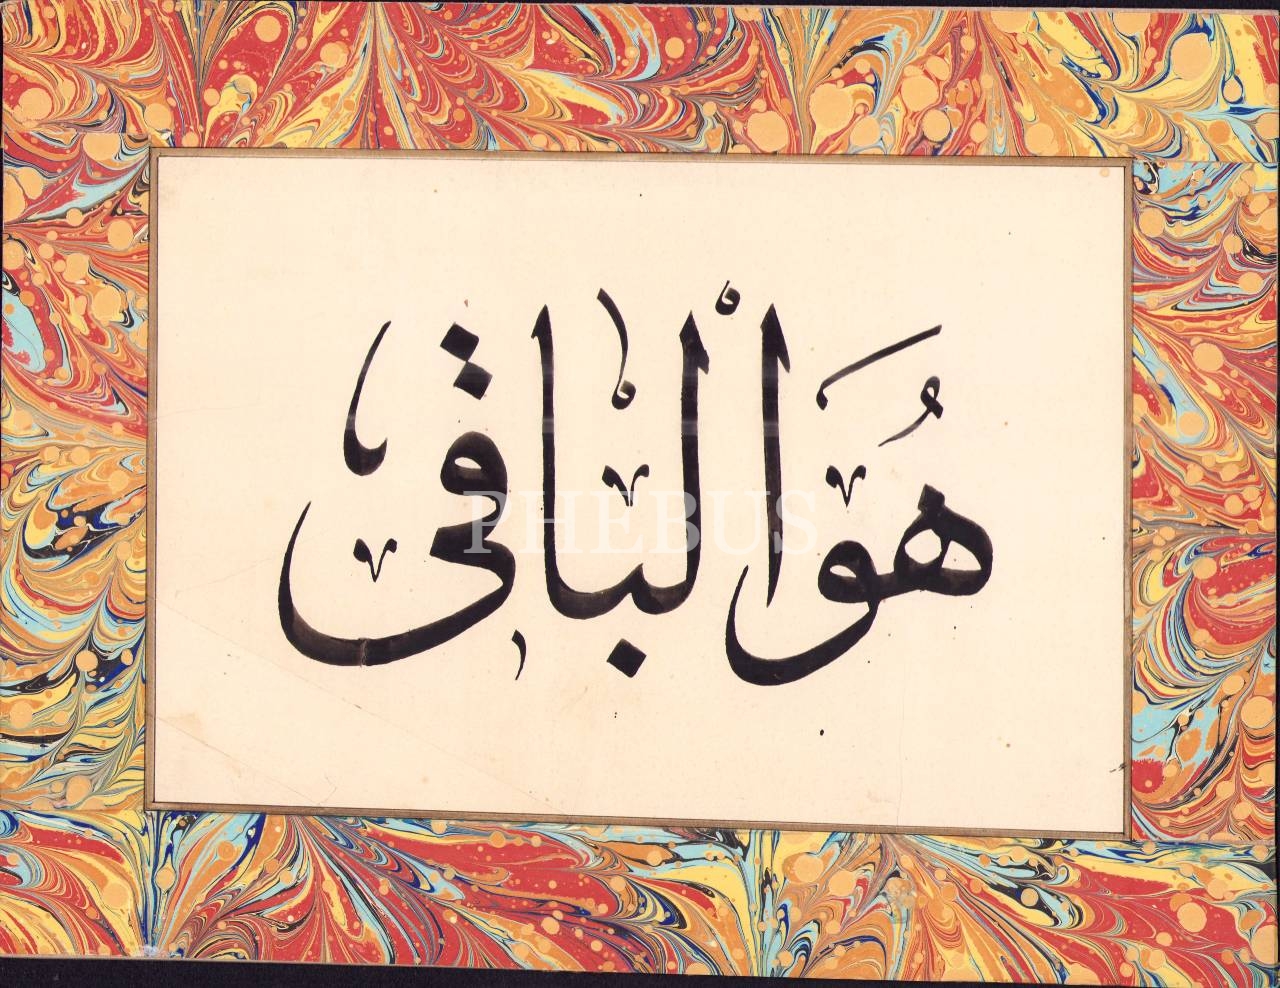 هُوَ الباقي
PHEBUS